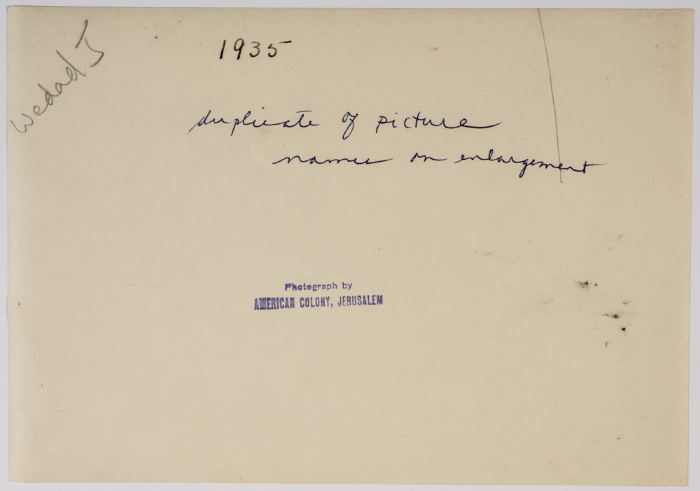 Wedad J
1935
duplicate of picture
names on enlargement
Photograph by
AMERICAN COLONY, JERUSALEM